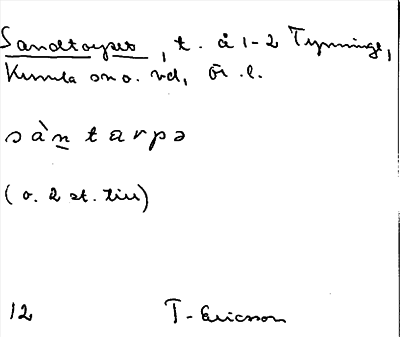 Sandtorpes, t. å 1-2 Tynninge,
Kumla sn o. hd, Ör. l.
sàn̲tarpə
(o. 2 st. till)
12 T. Ericsson